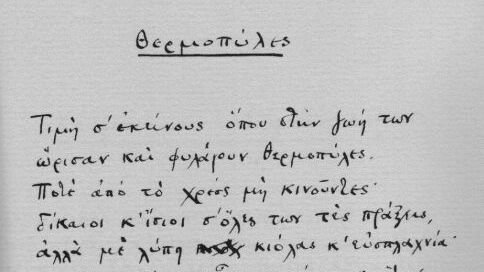 Θερμοπύλες
Τιμὴ σ' ἐκείνους ὅπου στὴν ζωή των
ὥρισαν καὶ φυλάγουν Θερμοπύλες.
Ποτὲ ἀπὸ τὸ χρέος μὴ κινοῦντες·
δίκαιοι κ' ἴσιοι σ' ὅλες των τὲς πράξεις,
ἀλλὰ μὲ λύπη κιόλας κ' εὐσπλαχνία·